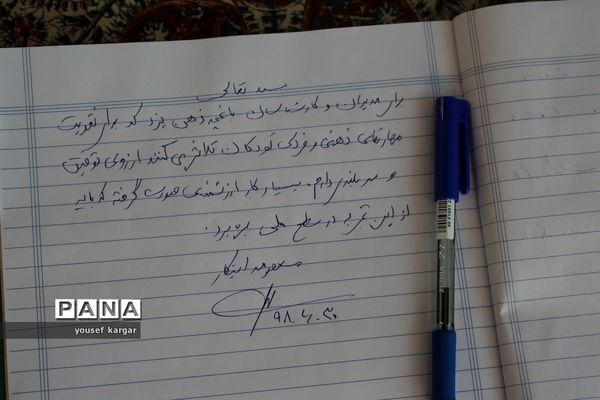 بسمه تعالی
برای مدیران و کارشناسان باغچه ذهن یزد که برای تقویت
مهارتهای ذهنی و فردی کودکان تلاش می کنند آرزوی توفیق
و سربلندی دارم. بسیار کار ارزشمندی صورت گرفته که باید
از این تجربه در سطح ملی بهره برد.
معصومه ابتکار
۹۸.۶.۳۰
PANA
yousef kargar